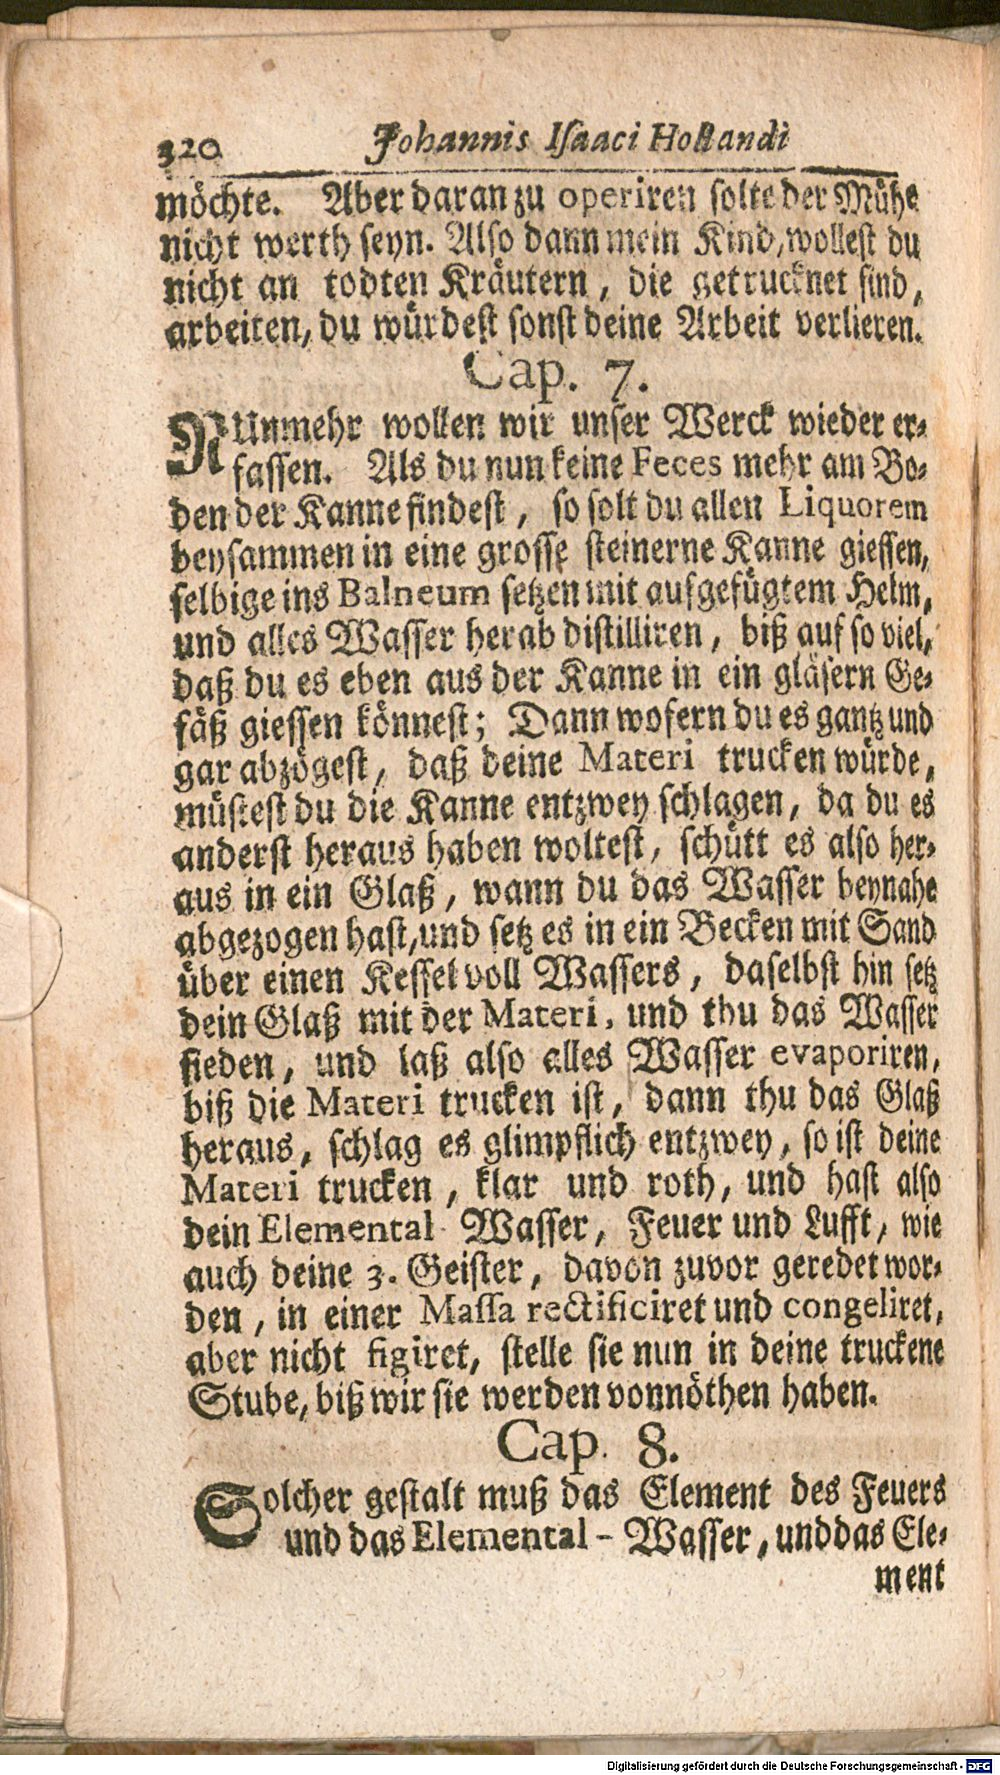 320 Johannis Isaaci Hollandi
möchte. Aber daran zu operiren solte der Mühe
nicht werth seyn. Also dann mein Kind, wollest du
nicht an todten Kräutern, die getrucknet sind,
arbeiten, du würdest sonst deine Arbeit verlieren.
Cap. 7.
NUnmehr wollen wir unser Werck wieder er-
fassen. Als du nun keine Feces mehr am Bo-
den der Kanne findest, so solt du allen Liquorem
beysammen in eine grosse steinerne Kanne giessen,
selbige ins Balneum setzen mit aufgefügtem Helm,
und alles Wasser herab distilliren, biß auf so viel,
daß du es eben aus der Kanne in ein gläsern Ge-
fäß giessen könnest; Dann wofern du es gantz und
gar abzögest, daß deine Materi trucken würde,
müstest du die Kanne entzwey schlagen, da du es
anderst heraus haben woltest, schütt es also her-
aus in ein Glaß, wann du das Wasser beynahe
abgezogen hast, und setz es in ein Becken mit Sand
über einen Kessel voll Wassers, daselbst hin setz
dein Glaß mit der Materi, und thu das Wasser
sieden, und laß also alles Wasser evaporiren,
biß die Materi trucken ist, dann thu das Glaß
heraus, schlag es glimpflich entzwey, so ist deine
Materi trucken, klar und roth, und hast also
dein Elemental Wasser, Feuer und Lufft, wie
auch deine 3. Geister, davon zuvor geredet wor-
den, in einer Massa rectificiret und congeliret,
aber nicht figiret, stelle sie nun in deine truckene
Stube, biß wir sie werden vonnöthen haben.
Cap. 8.
Solcher gestalt muß das Element des Feuers
und das Elemental-Wasser, und das Ele-
ment
Digitalisierung gefördert durch die Deutsche Forschungsgemeinschaft - DFG